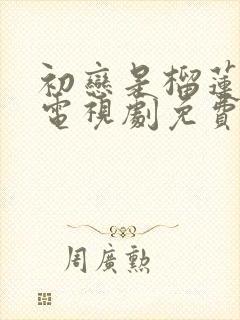 初戀是榴蓮
電視劇免費
周廣勲